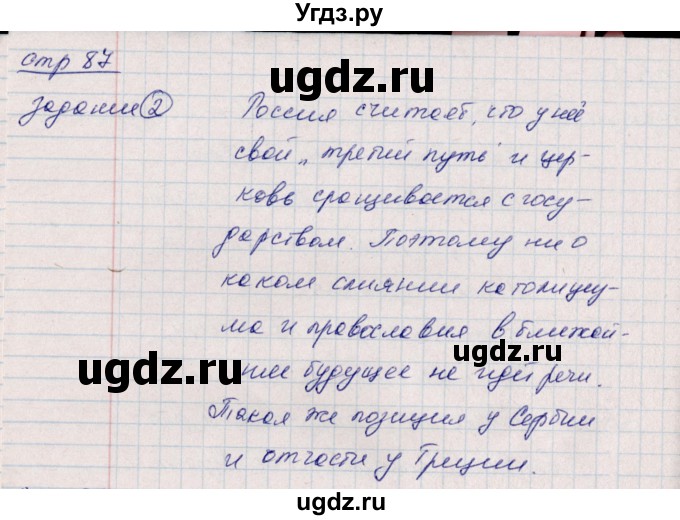 Угдз.ру
стр 87
ugdz.ru
ugdz.ru
задание 2
Россия считает, что у неё
свой "третий путь" и цер-
ugdz.ru
ковь сращивается с госу-
дарством. Поэтому ни о
каком слиянии католициз-
ugdz.ru
ма и православия в ближай-
ugdz.ru
шие будущее не идёт речи.
Такая же позиция у Сербии
и отчасти у Греции.
ugdz.ru